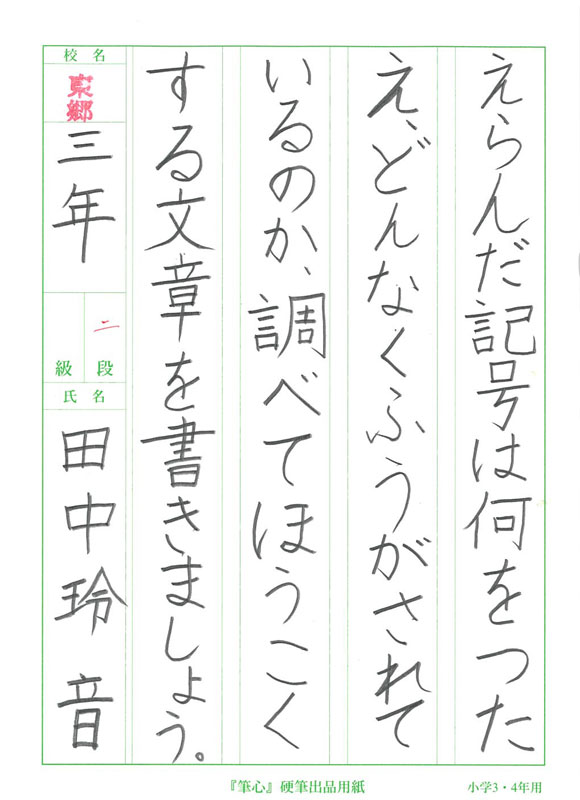 えらんだ記号は何をつた
え、どんなくふうがされて
いるのか、調べてほうこく
する文章を書きましょう。
校名
東郷
三年
二
級段
氏名
田中玲音
『筆心』硬筆出品用紙
小学3・4年用